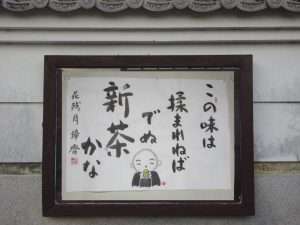 この味は
揉まれねば
でぬ
新茶
かな